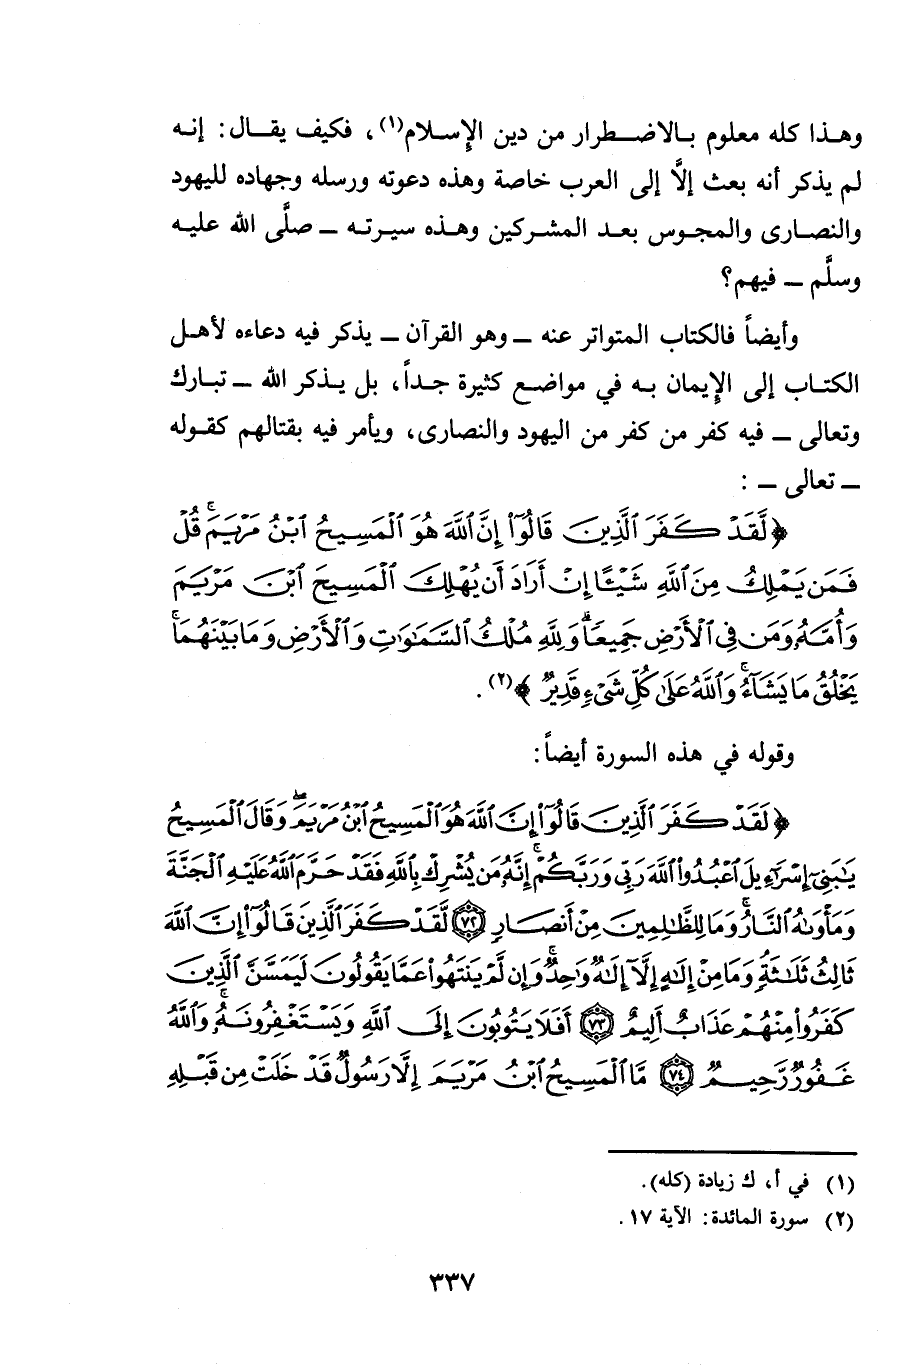 وهذا كله معلوم بالاضطرار من دين الإسلام(١)، فكيف يقال: إنه
لم يذكر أنه بعث إلَّا إلى العرب خاصة وهذه دعوته ورسله وجهاده لليهود
والنصارى والمجوس بعد المشركين وهذه سيرته – صلَّى الله عليه
وسلَّم – فيهم؟
وأيضاً فالكتاب المتواتر عنه – وهو القرآن – يذكر فيه دعاءه لأهل
الكتاب إلى الإيمان به في مواضع كثيرة جداً، بل يذكر الله – تبارك
وتعالى – فيه كفر من كفر من اليهود والنصارى، ويأمر فيه بقتالهم كقوله
– تعالى – :
﴿لَّقَدْ كَفَرَ ٱلَّذِينَ قَالُوٓا۟ إِنَّ ٱللَّهَ هُوَ ٱلْمَسِيحُ ٱبْنُ مَرْيَمَ ۚ قُلْ
فَمَن يَمْلِكُ مِنَ ٱللَّهِ شَيْـًٔا إِنْ أَرَادَ أَن يُهْلِكَ ٱلْمَسِيحَ ٱبْنَ مَرْيَمَ
وَأُمَّهُۥ وَمَن فِى ٱلْأَرْضِ جَمِيعًا ۗ وَلِلَّهِ مُلْكُ ٱلسَّمَـٰوَٰتِ وَٱلْأَرْضِ وَمَا بَيْنَهُمَا ۚ
يَخْلُقُ مَا يَشَآءُ ۚ وَٱللَّهُ عَلَىٰ كُلِّ شَىْءٍ قَدِيرٌ﴾(٢).
وقوله في هذه السورة أيضاً:
﴿لَقَدْ كَفَرَ ٱلَّذِينَ قَالُوٓا۟ إِنَّ ٱللَّهَ هُوَ ٱلْمَسِيحُ ٱبْنُ مَرْيَمَ ۖ وَقَالَ ٱلْمَسِيحُ
يَـٰبَنِىٓ إِسْرَٰٓءِيلَ ٱعْبُدُوا۟ ٱللَّهَ رَبِّى وَرَبَّكُمْ ۖ إِنَّهُۥ مَن يُشْرِكْ بِٱللَّهِ فَقَدْ حَرَّمَ ٱللَّهُ عَلَيْهِ ٱلْجَنَّةَ
وَمَأْوَىٰهُ ٱلنَّارُ ۖ وَمَا لِلظَّـٰلِمِينَ مِنْ أَنصَارٍ ٧٢ لَّقَدْ كَفَرَ ٱلَّذِينَ قَالُوٓا۟ إِنَّ ٱللَّهَ
ثَالِثُ ثَلَـٰثَةٍ ۘ وَمَا مِنْ إِلَـٰهٍ إِلَّآ إِلَـٰهٌ وَٰحِدٌ ۚ وَإِن لَّمْ يَنتَهُوا۟ عَمَّا يَقُولُونَ لَيَمَسَّنَّ ٱلَّذِينَ
كَفَرُوا۟ مِنْهُمْ عَذَابٌ أَلِيمٌ ٧٣ أَفَلَا يَتُوبُونَ إِلَى ٱللَّهِ وَيَسْتَغْفِرُونَهُۥ ۚ وَٱللَّهُ
غَفُورٌ رَّحِيمٌ ٧٤ مَّا ٱلْمَسِيحُ ٱبْنُ مَرْيَمَ إِلَّا رَسُولٌ قَدْ خَلَتْ مِن قَبْلِهِ
(١) في أ، ك زيادة (كله).
(٢) سورة المائدة: الآية ١٧.
٣٣٧